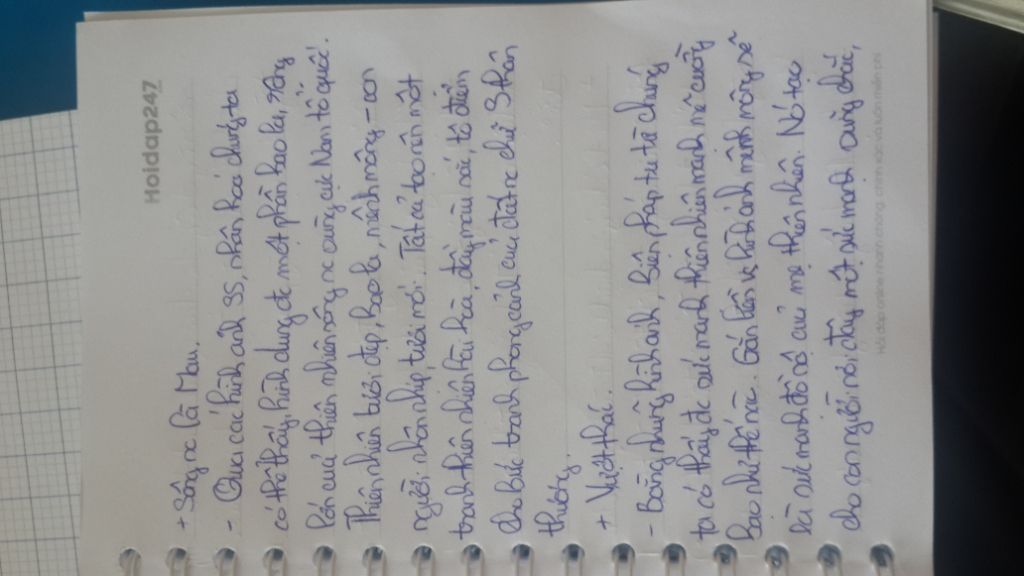 Hoidap247
+ Sông nc Cà Mau.
- Qua các hình ảnh SS, nhân hoá chúng ta
có thể thấy, hình dung đc một phần bao la, rộng
lớn của thiên nhiên sông nc cùng cực Nam tổ quốc.
Thiên nhiên tươi đẹp, bao la, mênh mông - con
người nhộn nhịp, tươi mới. Tất cả tạo nên một
tranh thiên nhiên hài hòa, đầy màu sắc, tô điểm
cho bức tranh phong cảnh của đất nc chữ S thân
thương.
+ Vượt thác.
- Bằng những hình ảnh, biện pháp tu từ chúng
ta có thấy đc sức mạnh thiên nhiên mạnh mẽ cường
bạo như thế nào. Gắn liền vs hình ảnh mênh mông sẽ
là sức mạnh đồ sộ của mẹ thiên nhiên. Nó tạo
cho con người nơi đây một sức mạnh cứng chắc,
Hỏi đáp online nhanh chóng, chính xác và luôn miễn phí